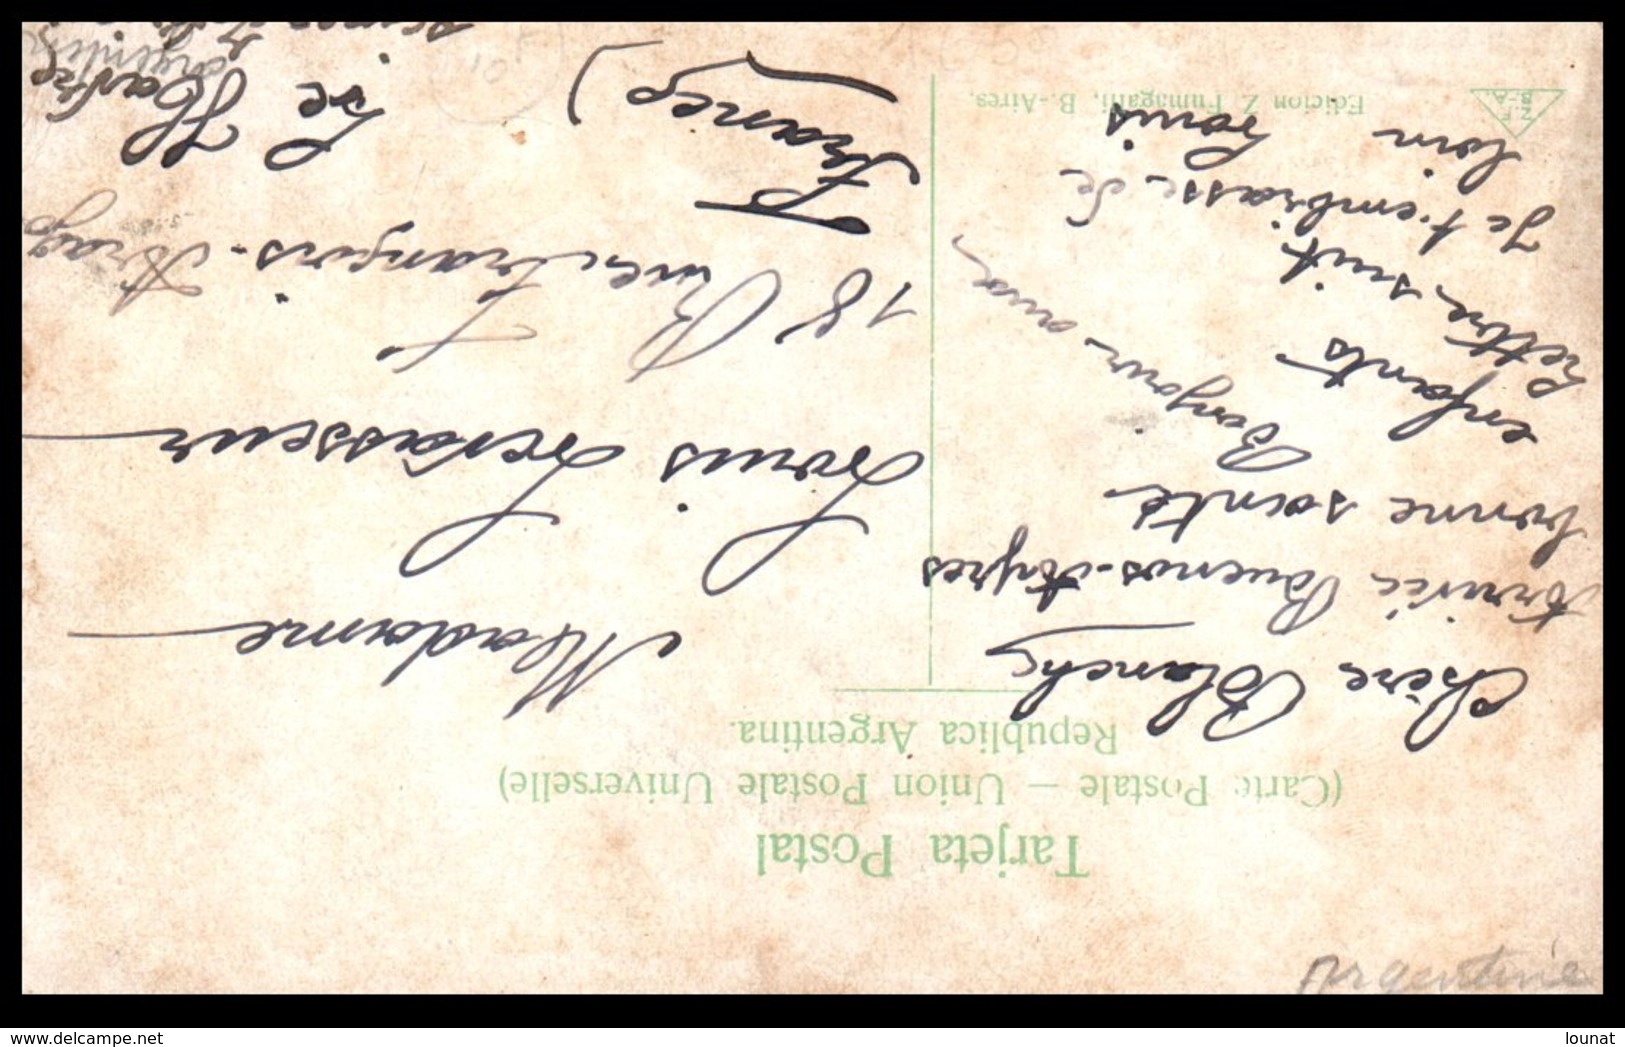 Tarjeta Postal
(Carte Postale — Union Postale Universelle)
Republica Argentina.
Chère Blanche
Arrivée Buenos-Ayres
bonne santé
Bonjour aux
enfants
Lettre suit
Je t'embrasse de
loin Louis
Edicion Z. Fumagalli, B.-Aires.
Madame
Louis Levasseur
18 Rue François-Arago
Le Havre
(France)
Argentine
delcampe.net
lounat